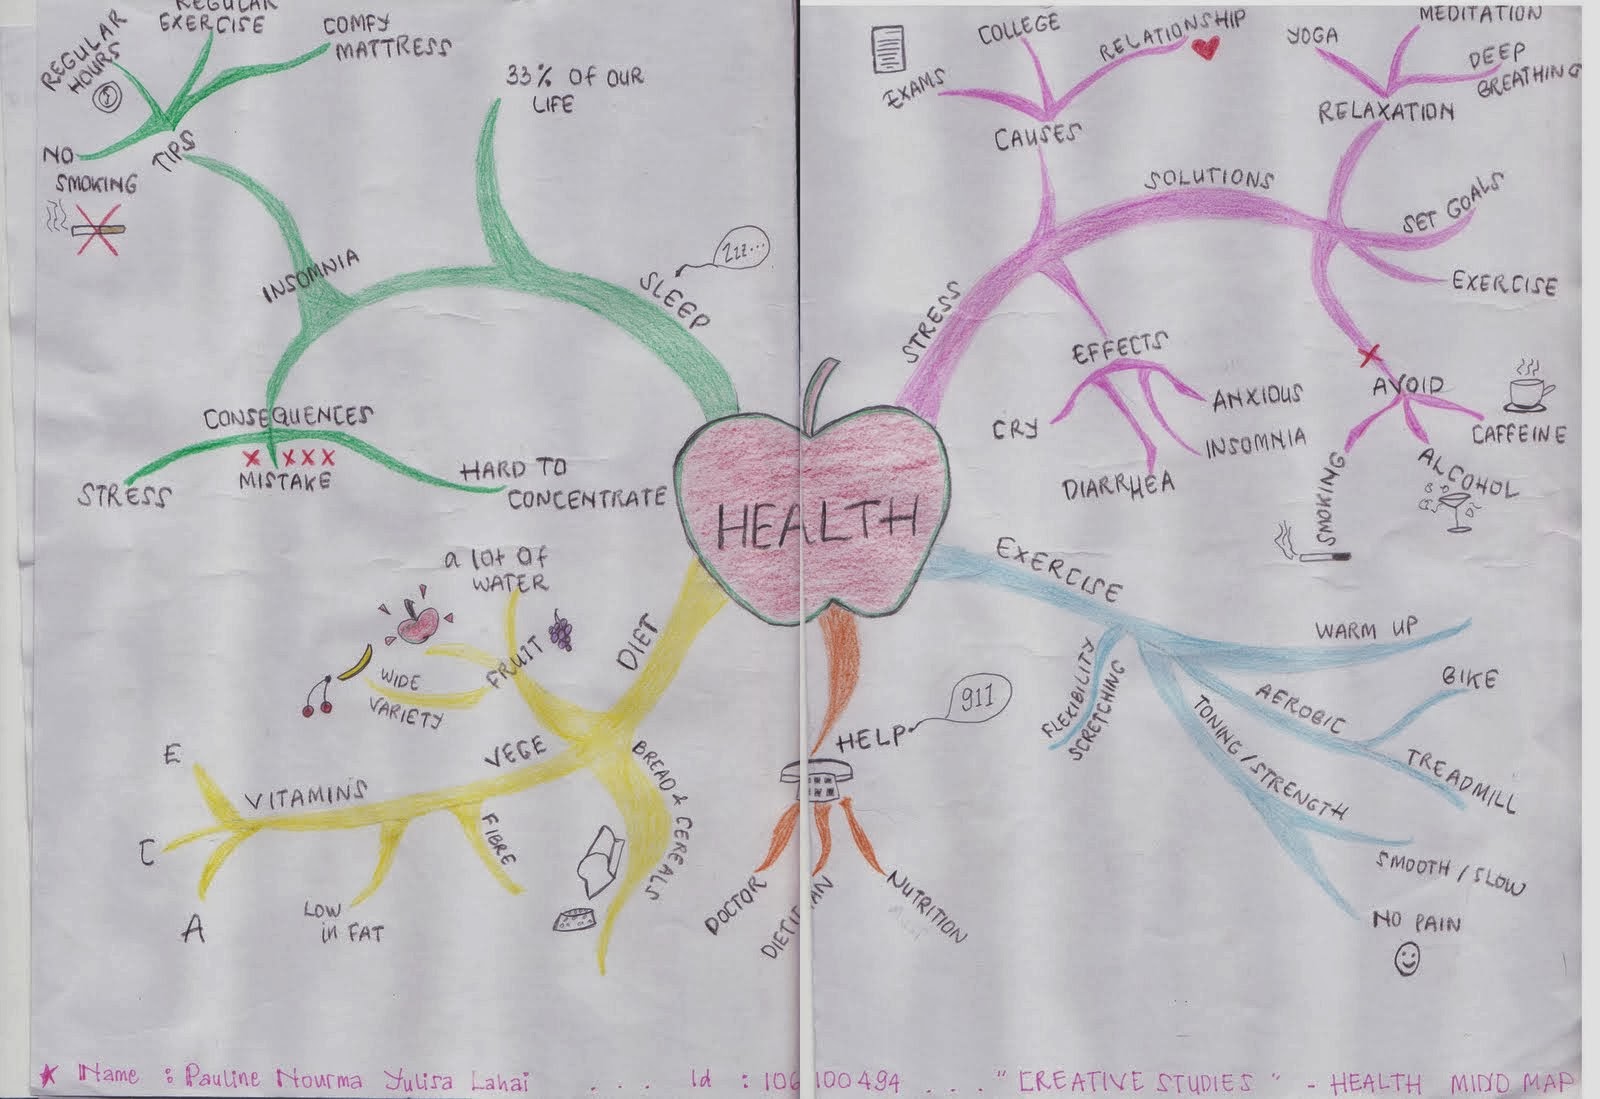 REGULAR
EXERCISE
COMFY
MATTRESS
REGULAR
HOURS
NO
SMOKING
TIPS
33% OF OUR
LIFE
INSOMNIA
SLEEP
Zzz...
CONSEQUENCES
STRESS
MISTAKE
HARD TO
CONCENTRATE
EXAMS
COLLEGE
RELATIONSHIP
CAUSES
YOGA
MEDITATION
DEEP
BREATHING
RELAXATION
SOLUTIONS
SET GOALS
EXERCISE
STRESS
EFFECTS
CRY
DIARRHEA
INSOMNIA
ANXIOUS
AVOID
SMOKING
ALCOHOL
CAFFEINE
HEALTH
a lot of
WATER
FRUIT
WIDE
VARIETY
DIET
VEGE
VITAMINS
E
C
A
LOW
in FAT
FIBRE
BREAD & CEREALS
HELP
911
DOCTOR
NUTRITION
EXERCISE
FLEXIBILITY
SCRETCHING
WARM UP
AEROBIC
BIKE
TREADMILL
TONING / STRENGTH
SMOOTH / SLOW
NO PAIN
Name : Pauline Nourma Yulisa Lahai ... Id : 106100494 ... "CREATIVE STUDIES" - HEALTH MIND MAP